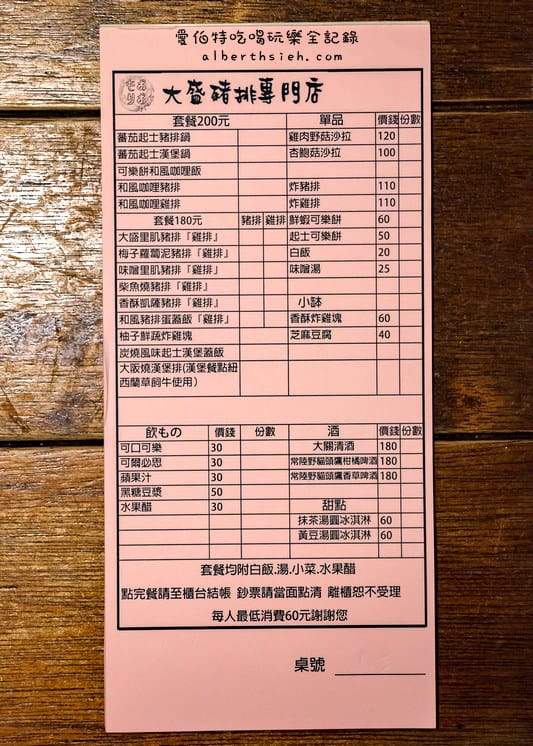 愛伯特吃喝玩樂全記錄
alberthsieh.com
大盛豬排專門店
套餐200元 單品 價錢 份數
蕃茄起士豬排鍋 雞肉野菇沙拉 120
蕃茄起士漢堡鍋 杏鮑菇沙拉 100
可樂餅和風咖哩飯
和風咖哩豬排 炸豬排 110
和風咖哩雞排 炸雞排 110
套餐180元 豬排 雞排 鮮蝦可樂餅 60
大盛里肌豬排『雞排』 起士可樂餅 50
梅子蘿蔔泥豬排『雞排』 白飯 20
味噌里肌豬排『雞排』 味噌湯 25
柴魚燒豬排『雞排』
香酥凱薩豬排『雞排』 小缽
和風豬排蛋蓋飯『雞排』 香酥炸雞塊 60
柚子鮮蔬炸雞塊 芝麻豆腐 40
炭燒風味起士漢堡蓋飯
大阪燒漢堡排(漢堡餐點紐
西蘭草飼牛使用)
飲もの 價錢 份數 酒 價錢 份數
可口可樂 30 大關清酒 180
可爾必思 30 常陸野貓頭鷹柑橘啤酒 180
蘋果汁 30 常陸野貓頭鷹香草啤酒 180
黑糖豆漿 50
水果醋 30 甜點
抹茶湯圓冰淇淋 60
黃豆湯圓冰淇淋 60
套餐均附白飯.湯.小菜.水果醋
點完餐請至櫃台結帳 鈔票請當面點清 離櫃恕不受理
每人最低消費60元謝謝您
桌號